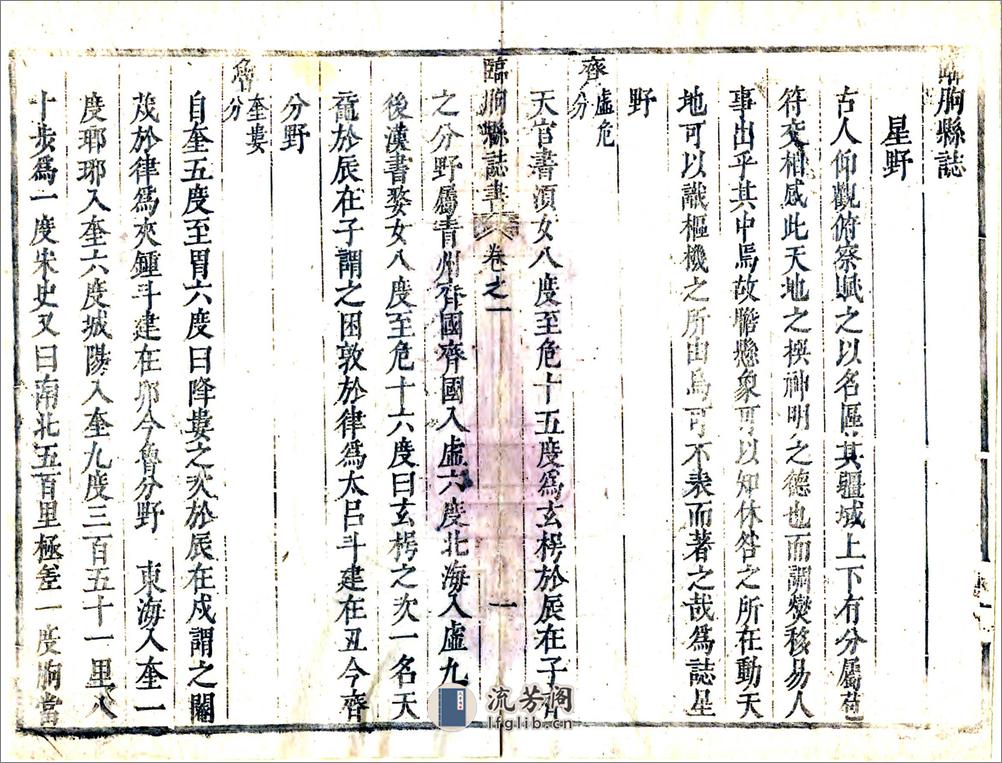 臨朐縣誌
星野
古人仰觀俯察賦之以名區其疆域上下有分屬焉
符交相感此天地之撰神明之德也而調燮移易人
事出乎其中焉故瞻懸象可以知休咎之所在動天
地可以識樞機之所由烏可不表而著之哉為誌星
野
齊分虛危
天官書須女八度至危十五度為玄枵於辰在子
臨朐縣誌書 卷之一 一
之分野屬青州齊國齊國入虛六度北海入虛九
後漢書婺女八度至危十六度曰玄枵之次一名天
黿於辰在子謂之困敦於律為太呂斗建在丑今齊
分野
魯分奎婁
自奎五度至胃六度曰降婁之次於辰在戍謂之閹
茂於律為夾鍾斗建在卯今魯分野 東海入奎一
度瑯琊入奎六度城陽入奎九度三百五十一里八
十步為一度宋史又曰南北五百里極差一度朐當
流芳阁
lfglib.cn